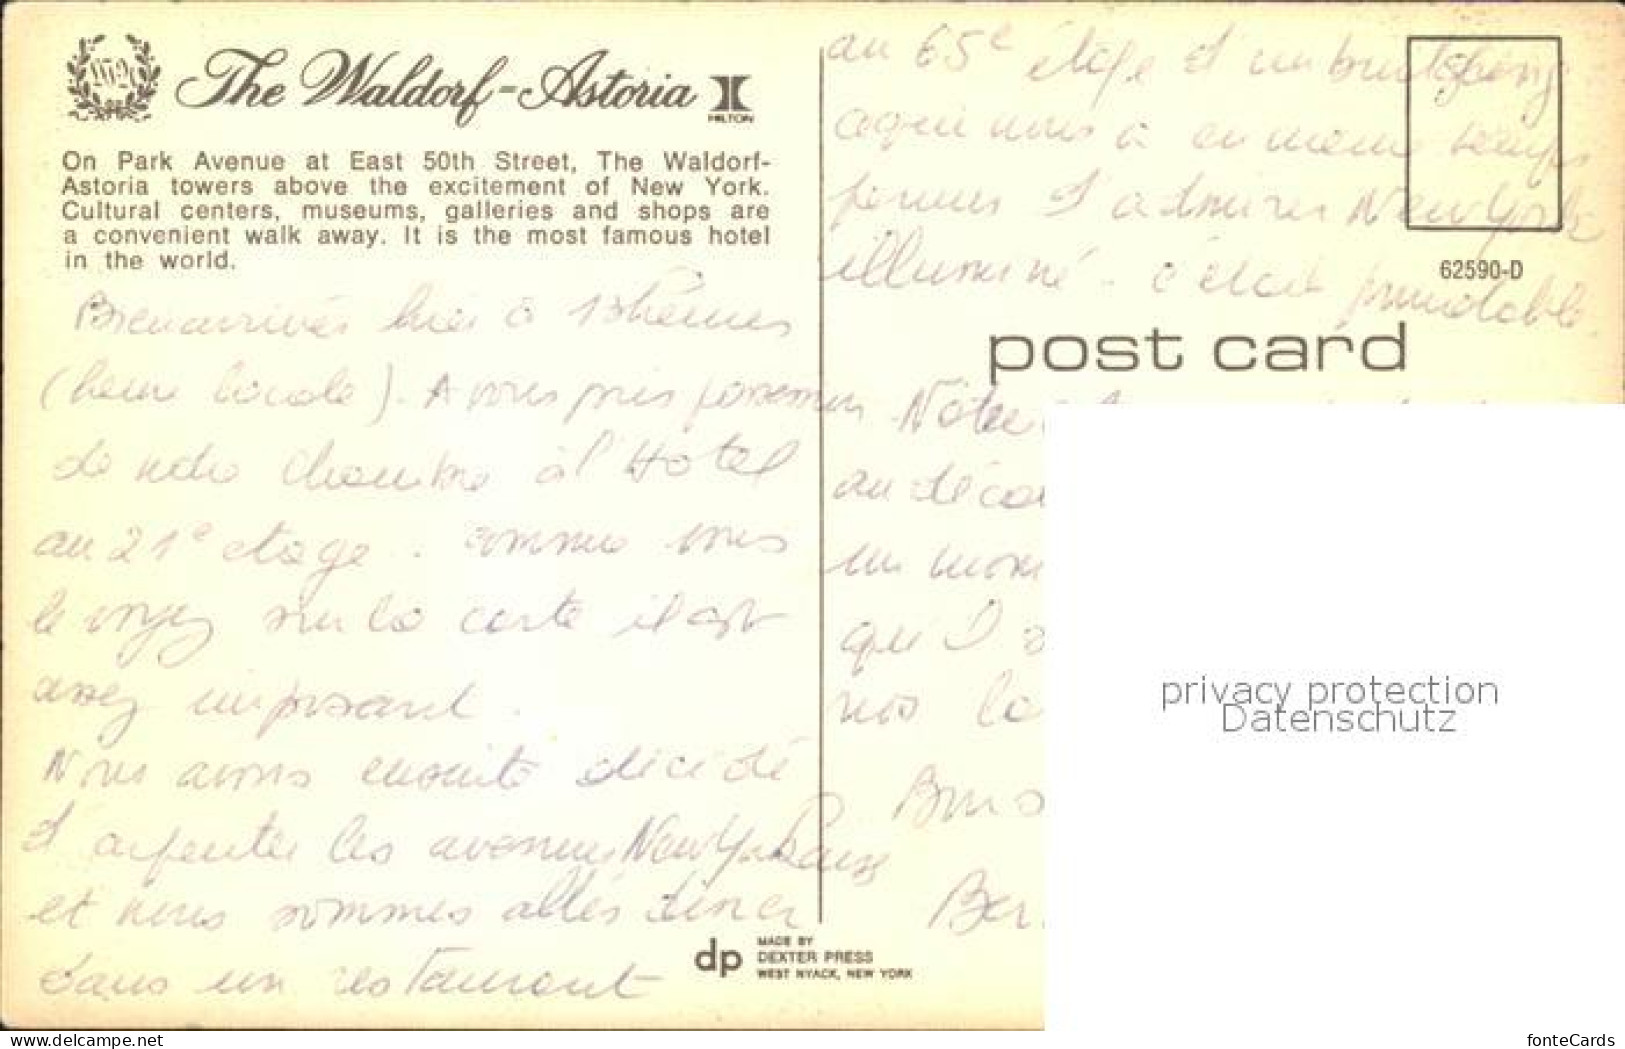 The Waldorf-Astoria
HILTON
On Park Avenue at East 50th Street, The Waldorf-
Astoria towers above the excitement of New York.
Cultural centers, museums, galleries and shops are
a convenient walk away. It is the most famous hotel
in the world.
Bien arrivés hier à 13 heures
(heure locale). Avons pris possession
de notre chambre à l'Hotel
au 21e etage. comme vous
le voyez sur la carte il est
assez imposant.
Nous avons ensuite décidé
d'arpenter les avenues New Yorkaise
et nous sommes allés diner
dans un restaurant
au 65e étage d'un building
ce qui nous a en meme temps
permis d'admirer New York
illuminé - c'était formidable.
62590-D
post card
Notre
au déco
un mom
que
nos
Ber
dp
MADE BY
DEXTER PRESS
WEST NYACK, NEW YORK
privacy protection
Datenschutz
www.delcampe.net
fonteCards